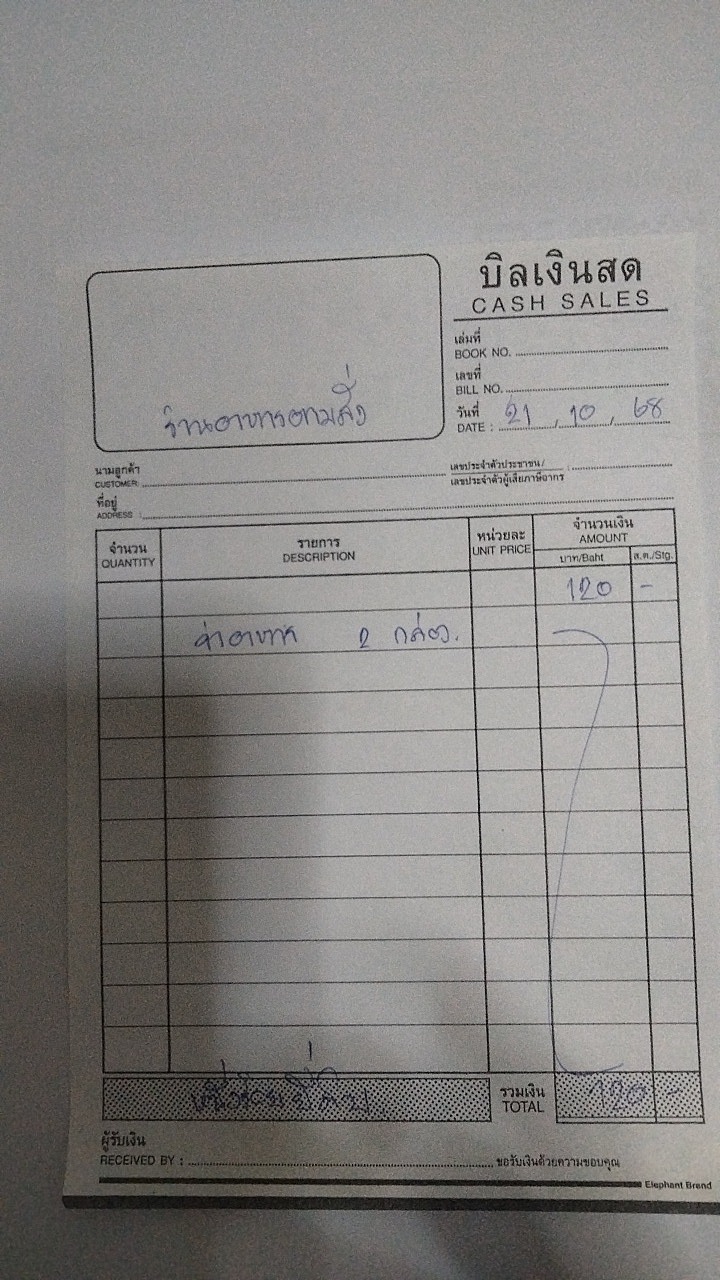 บิลเงินสด
CASH SALES
เล่มที่
BOOK NO.
เลขที่
BILL NO.
วันที่ 21, 10, 68
DATE :
ร้านอาหารตามสั่ง
นามลูกค้า
CUSTOMER:
เลขประจำตัวประชาชน/ :
เลขประจำตัวผู้เสียภาษีอากร
ที่อยู่
ADDRESS :
จำนวน รายการ หน่วยละ จำนวนเงิน
QUANTITY DESCRIPTION UNIT PRICE AMOUNT
บาท/Baht ส.ต./Stg.
120 -
ค่าอาหาร 2 กล่อง.
หนึ่งร้อยยี่สิบ รวมเงิน 120 -
TOTAL
ผู้รับเงิน
RECEIVED BY : ขอรับเงินด้วยความขอบคุณ
Elephant Brand